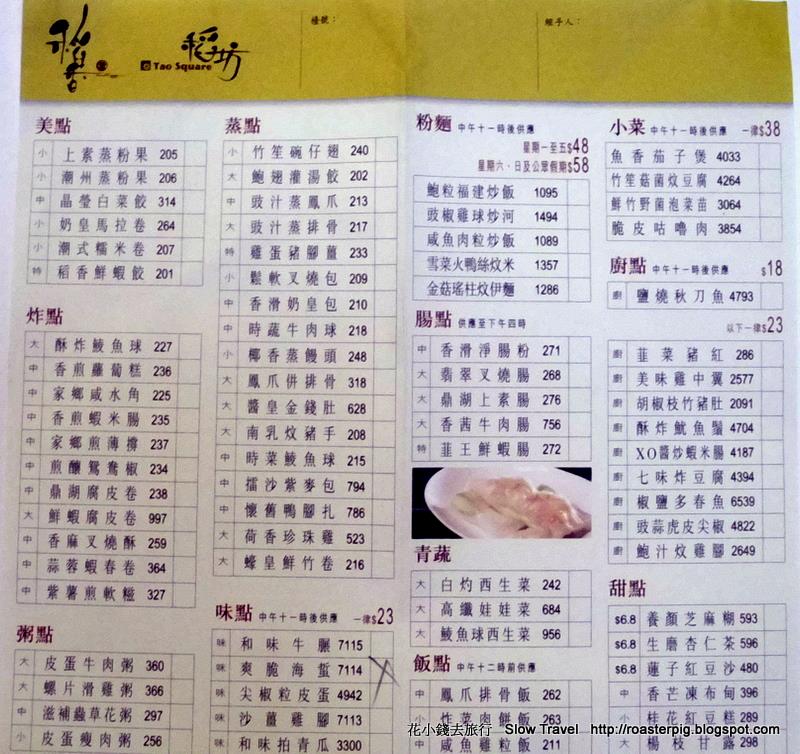 稻香
稻坊
Tao Square
檯號：
經手人：
美點
小 上素蒸粉果 205
小 潮州蒸粉果 206
中 晶瑩白菜餃 314
小 奶皇馬拉卷 264
小 潮式糯米卷 207
特 稻香鮮蝦餃 201
炸點
大 酥炸鯪魚球 227
中 香煎蘿蔔糕 236
中 家鄉咸水角 225
中 香煎蝦米腸 235
中 家鄉煎薄撐 237
中 煎釀鴛鴦椒 234
中 鼎湖腐皮卷 238
大 鮮蝦腐皮卷 997
中 香麻叉燒酥 259
中 蒜蓉蝦春卷 364
中 紫薯煎軟糍 327
粥點
大 皮蛋牛肉粥 360
大 螺片滑雞粥 366
中 滋補蟲草花粥 297
小 皮蛋瘦肉粥 256
蒸點
小 竹笙碗仔翅 240
大 鮑翅灌湯餃 202
中 豉汁蒸鳳爪 213
大 豉汁蒸排骨 217
特 雞蛋豬腳薑 233
小 鬆軟叉燒包 209
中 香滑奶皇包 210
中 時蔬牛肉球 218
小 椰香蒸饅頭 248
大 鳳爪併排骨 318
大 醬皇金錢肚 628
大 南乳炆豬手 208
中 時菜鯪魚球 215
中 擂沙紫麥包 794
中 懷舊鴨腳扎 786
大 荷香珍珠雞 523
大 蠔皇鮮竹卷 216
味點 中午十一時後供應 一律$23
味 和味牛𦟌 7115
味 爽脆海蜇 7114
味 尖椒粒皮蛋 4942
味 沙薑雞腳 7113
味 和味拍青瓜 3300
粉麵 中午十一時後供應
星期一至五$48
星期六、日及公眾假期$58
鮑粒福建炒飯 1095
豉椒雞球炒河 1494
咸魚肉粒炒飯 1089
雪菜火鴨絲炆米 1357
金菇瑤柱炆伊麵 1286
腸點 供應至下午四時
中 香滑淨腸粉 271
大 翡翠叉燒腸 268
大 鼎湖上素腸 276
大 香茜牛肉腸 756
特 韭王鮮蝦腸 272
青蔬
大 白灼西生菜 242
大 高纖娃娃菜 684
大 鯪魚球西生菜 956
飯點 中午十二時前供應
中 鳳爪排骨飯 262
小 炸菜肉餅飯 263
大 咸魚雞粒飯 211
小菜 中午十一時後供應 一律$38
魚香茄子煲 4033
竹笙菇菌炆豆腐 4264
鮮竹野菌泡菜苗 3064
脆皮咕嚕肉 3854
廚點 中午十一時後供應 $18
廚 鹽燒秋刀魚 4793
以下一律$23
廚 韭菜豬紅 286
廚 美味雞中翼 2577
廚 胡椒枝竹豬肚 2091
廚 酥炸魷魚鬚 4704
廚 XO醬炒蝦米腸 4187
廚 七味炸豆腐 4394
廚 椒鹽多春魚 6539
廚 豉蒜虎皮尖椒 4822
廚 鮑汁炆雞腳 2649
甜點
$6.8 養顏芝麻糊 593
$6.8 生磨杏仁茶 596
$6.8 蓮子紅豆沙 480
中 香芒凍布甸 396
小 桂花紅豆糕 289
楊枝甘露 298
花小錢去旅行 Slow Travel http://roasterpig.blogspot.com